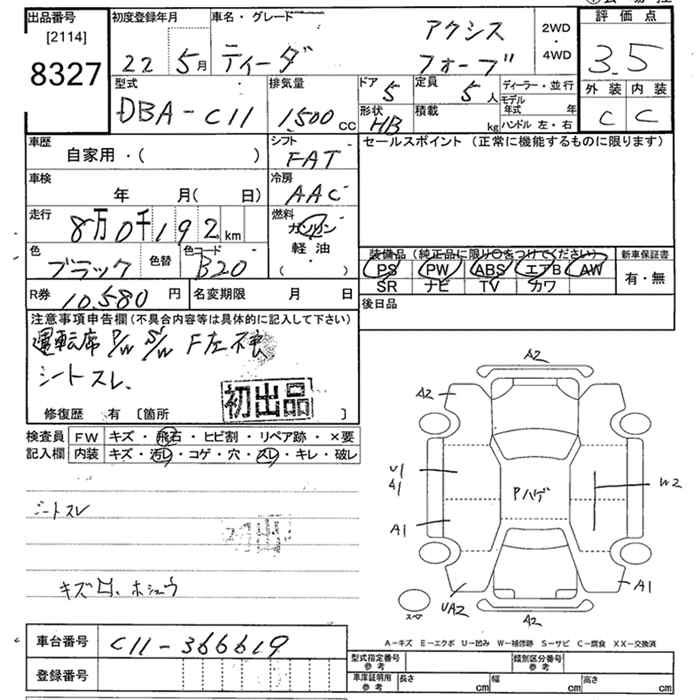 出品番号
[2114]
8327
初度登録年月
22 5月
車名・グレード
ティーダ
アクシス
フォーブ
2WD
4WD
評価点
3.5
外装 内装
C C
型式
DBA-C11
排気量
1500 cc
ドア
5
定員
5人
形状
HB
積載
kg
ディーラー・並行
モデル年式 年
ハンドル 左・右
車歴
自家用・( )
シフト
FAT
セールスポイント (正常に機能するものに限ります)
車検
年 月( 日)
冷房
AAC
走行
8万0千192km
燃料
ガソリン
軽油
( )
色
ブラック
色替
色コード
B20
装備品 (純正品に限り〇をつけてください)
PS PW ABS エアB AW
SR ナビ TV カワ
新車保証書
有・無
R券
10,580円
名変期限 月 日
後日品
注意事項申告欄(不具合内容等は具体的に記入して下さい)
運転席 P/W S/W F左不良
シートスレ、
初出品
修復歴 有 [箇所 ]
検査員
記入欄
FW キズ・飛石・ヒビ割・リペア跡・×要
内装 キズ・汚レ・コゲ・穴・スレ・キレ・破レ
シートスレ
初出品
キズ凹、ホシュウ
A2
A2
U1
A1
A1
Pハゲ
W2
A1
UA2
スペア
A2
車台番号
C11-366619
登録番号
A-キズ E-エクボ U-凹み W-補修跡 S-サビ C-腐食 XX-交換済
型式指定番号
参考
類別区分番号
参考
車庫証明用
参考
長さ cm
幅 cm
高さ cm